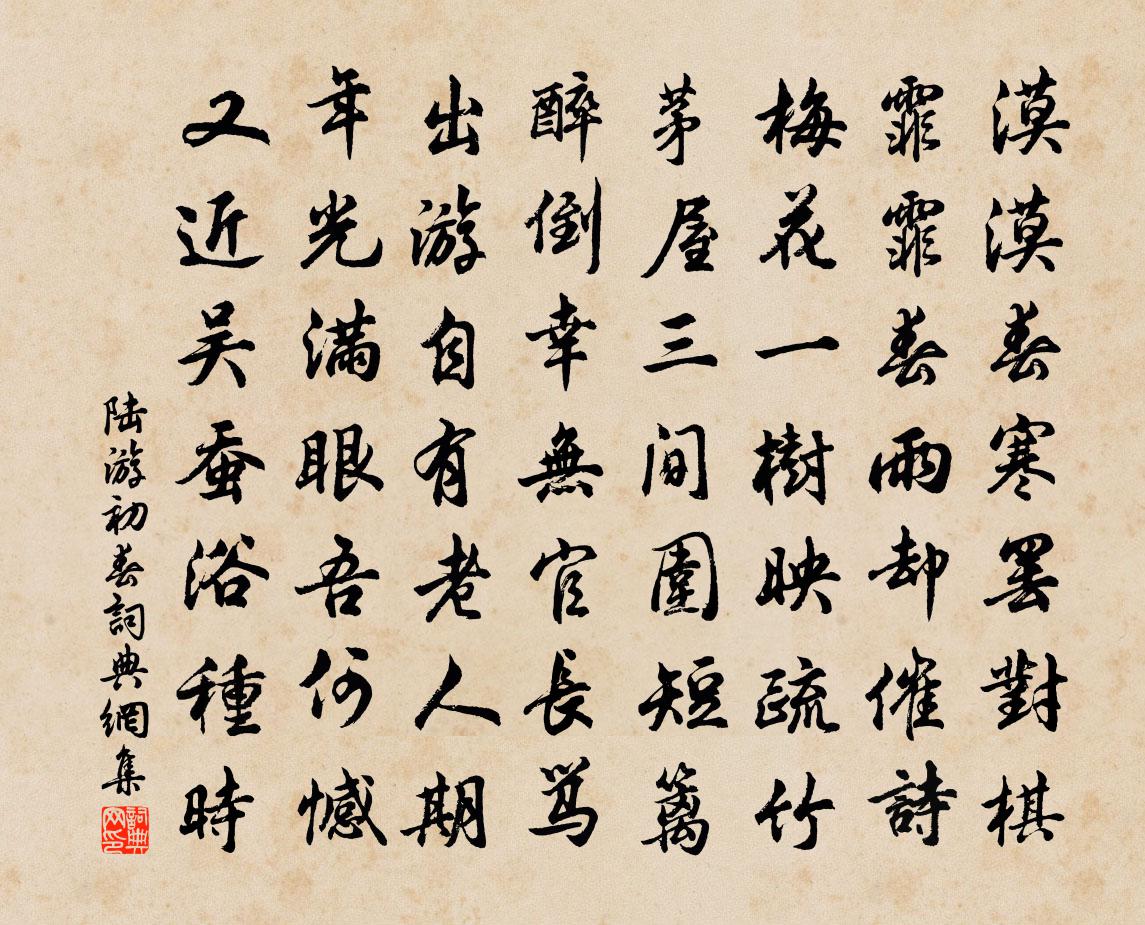 漠漠春寒罢對棋
霏霏春雨却催詩
梅花一樹映疏竹
茅屋三间圍短篱
醉倒幸無官長骂
出游自有老人期
年光滿眼吾何憾
又近吴蚕浴種時
陆游初春詞典網集
詞典网印